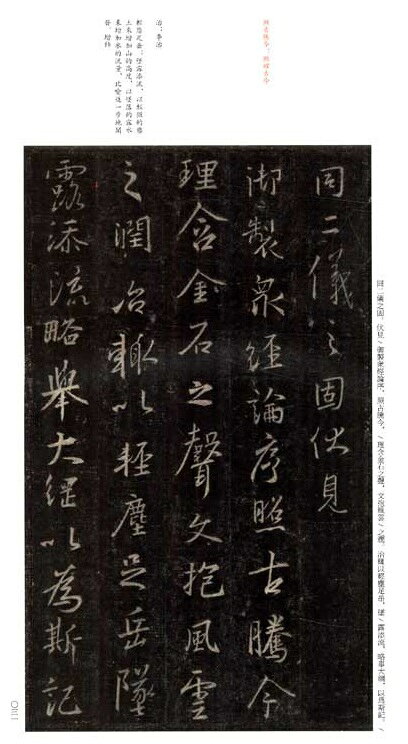 照古騰今：照耀古今
治：李治
輕塵足岳；墜露添流：以輕微的塵
土來增加山的高度，以墜落的露水
來增加水的流量。比喻進一步地闡
發、增飾
同二儀之固。伏見／御製衆經論序，照古騰今，／理含金石之聲，文抱風雲／之潤。治輒以輕塵足岳，墜／露添流，略舉大綱，以爲斯記。／
同二儀之固伏見
御製衆經論序照古騰今
理含金石之聲文抱風雲
之潤治輒以輕塵足岳墜
露添流略舉大綱以為斯記
〇三一